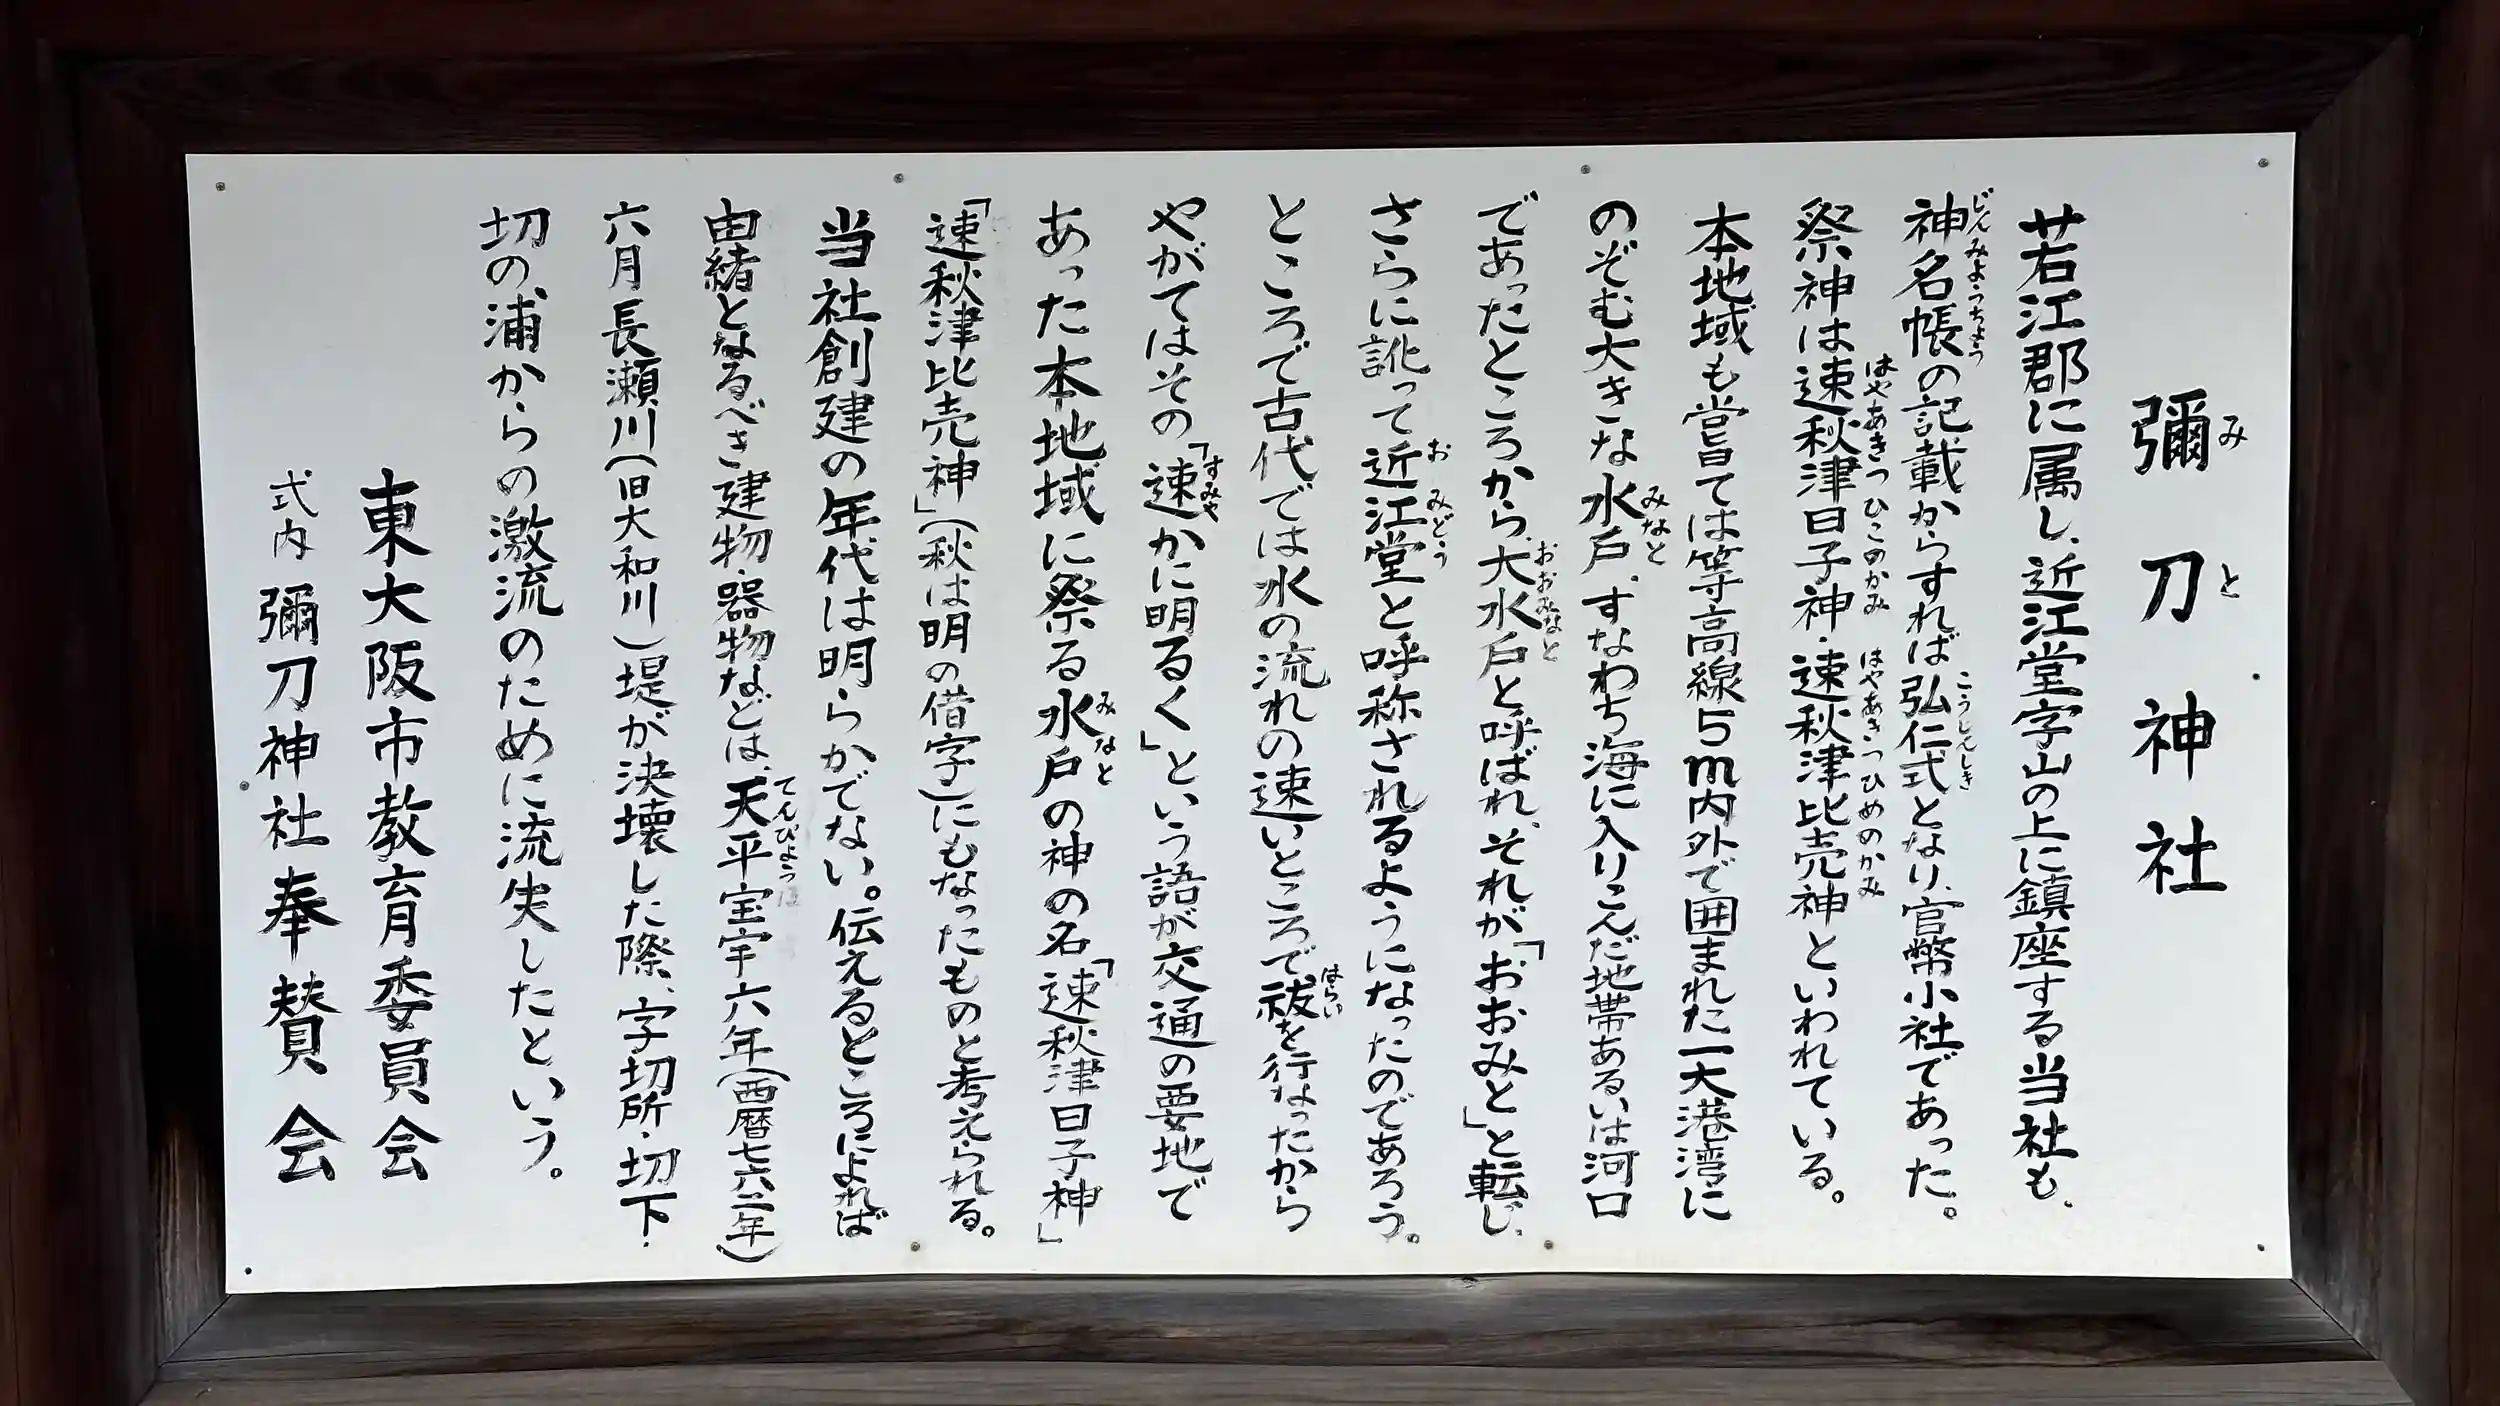 彌刀神社
若江郡に属し、近江堂字山の上に鎮座する当社も、
神名帳の記載からすれば弘仁式となり、官幣小社であった。
祭神は速秋津日子神・速秋津比売神といわれている。
本地域も嘗ては等高線5m内外で囲まれた一大港湾に
のぞむ大きな水戸、すなわち海に入りこんだ地帯あるいは河口
であったところから、大水戸と呼ばれ、それが「おおみと」と転じ、
さらに訛って近江堂と呼称されるようになったのであろう。
ところで古代では水の流れの速いところで祓を行なったから
やがてはその「速かに明るく」という語が交通の要地で
あった本地域に祭る水戸の神の名「速秋津日子神」
「速秋津比売神」(秋は明の借字)にもなったものと考えられる。
当社創建の年代は明らかでない。伝えるところによれば
由緒となるべき建物・器物などは、天平宝字六年(西暦七六二年)
六月長瀬川(旧大和川)堤が決壊した際、字切所・切下・
切の浦からの激流のために流失したという。
東大阪市教育委員会
式内 彌刀神社奉賛会